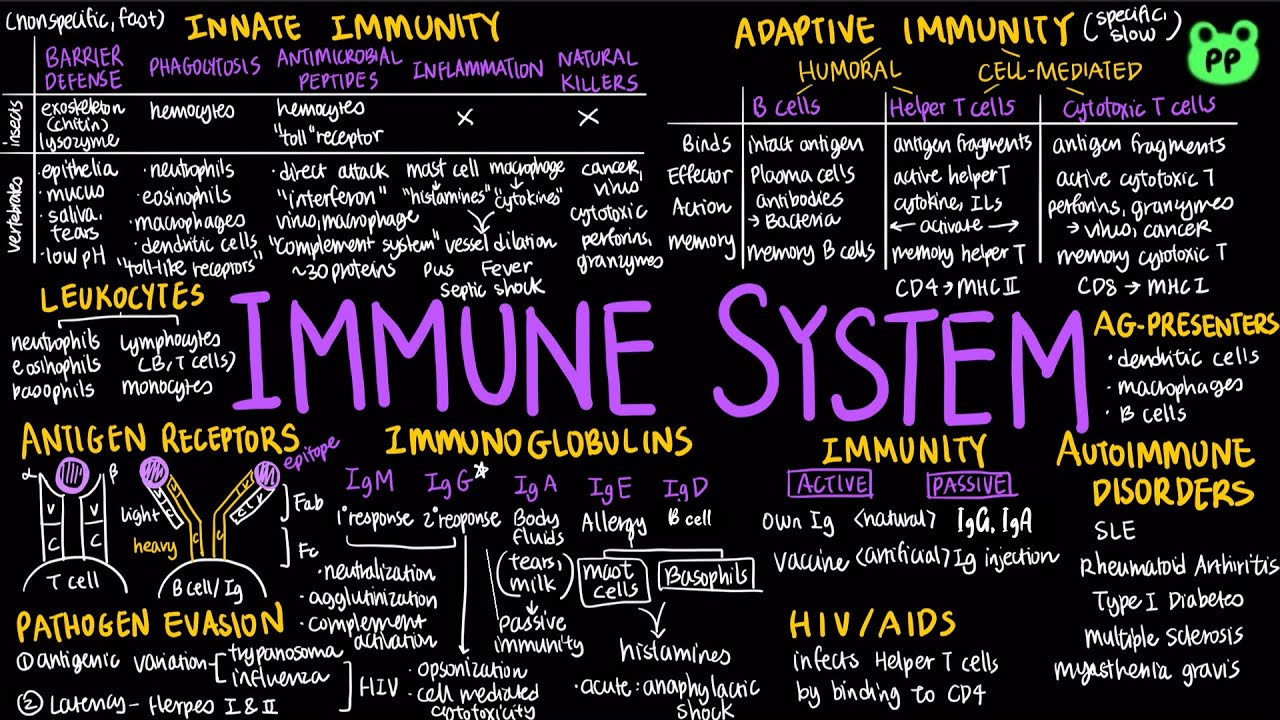 (nonspecific, fast) INNATE IMMUNITY
BARRIER DEFENSE
PHAGOCYTOSIS
ANTIMICROBIAL PEPTIDES
INFLAMMATION
NATURAL KILLERS
insects
exoskeleton
(chitin)
lysozyme
hemocytes
hemocytes
"toll" receptor
X
X
vertebrates
·epithelia
·mucus
·saliva,
tears
·low pH
·neutrophils
·eosinphils
·macrophages
·dendritic cells
"toll-like receptors"
·direct attack
"interferon"
virus, macrophage
"complement system"
~30 proteins
mast cell macrophage
"histamines" "cytokines"
vessel dilation
pus Fever
septic shock
cancer,
virus
cytotoxic
perforins,
granzymes
ADAPTIVE IMMUNITY (specific, slow)
PP
HUMORAL CELL-MEDIATED
B cells Helper T cells Cytotoxic T cells
Binds intact antigen antigen fragments antigen fragments
Effector Plasma cells active helper T active cytotoxic T
Action antibodies → Bacteria cytokine, ILs ← activate → perforins, granzymes → virus, cancer
memory memory B cells memory helper T memory cytotoxic T
CD4 → MHC II CD8 → MHC I
LEUKOCYTES
neutrophils lymphocytes
eosihophils (B, T cells)
basophils monocytes
IMMUNE SYSTEM
AG-PRESENTERS
· dendritic cells
· macrophages
· B cells
ANTIGEN RECEPTORS
α β
V V
C C
T cell
epitope
light
heavy
V V
C C
C C
Fab
Fc
B cell/Ig
IMMUNOGLOBULINS
IgM IgG* IgA IgE IgD
1° response 2° response
·neutralization
·agglutinization
·complement
activation
·opsonization
·cell mediated
cytotoxicity
Body
fluids
(tears,
milk)
passive
immunity
Allergy
B cell
mast cells
Basophils
histamines
·acute: anaphylactic
shock
IMMUNITY
ACTIVE PASSIVE
own Ig <natural> IgG, IgA
vaccine <artificial> Ig injection
AUTOIMMUNE
DISORDERS
SLE
Rheumatoid Arthiritis
Type I Diabetes
multiple sclerosis
myasthenia gravis
PATHOGEN EVASION
① antigenic variation - trypanosoma
influenza
② Latency - Herpes I & II
HIV
HIV/AIDS
infects Helper T cells
by binding to CD4